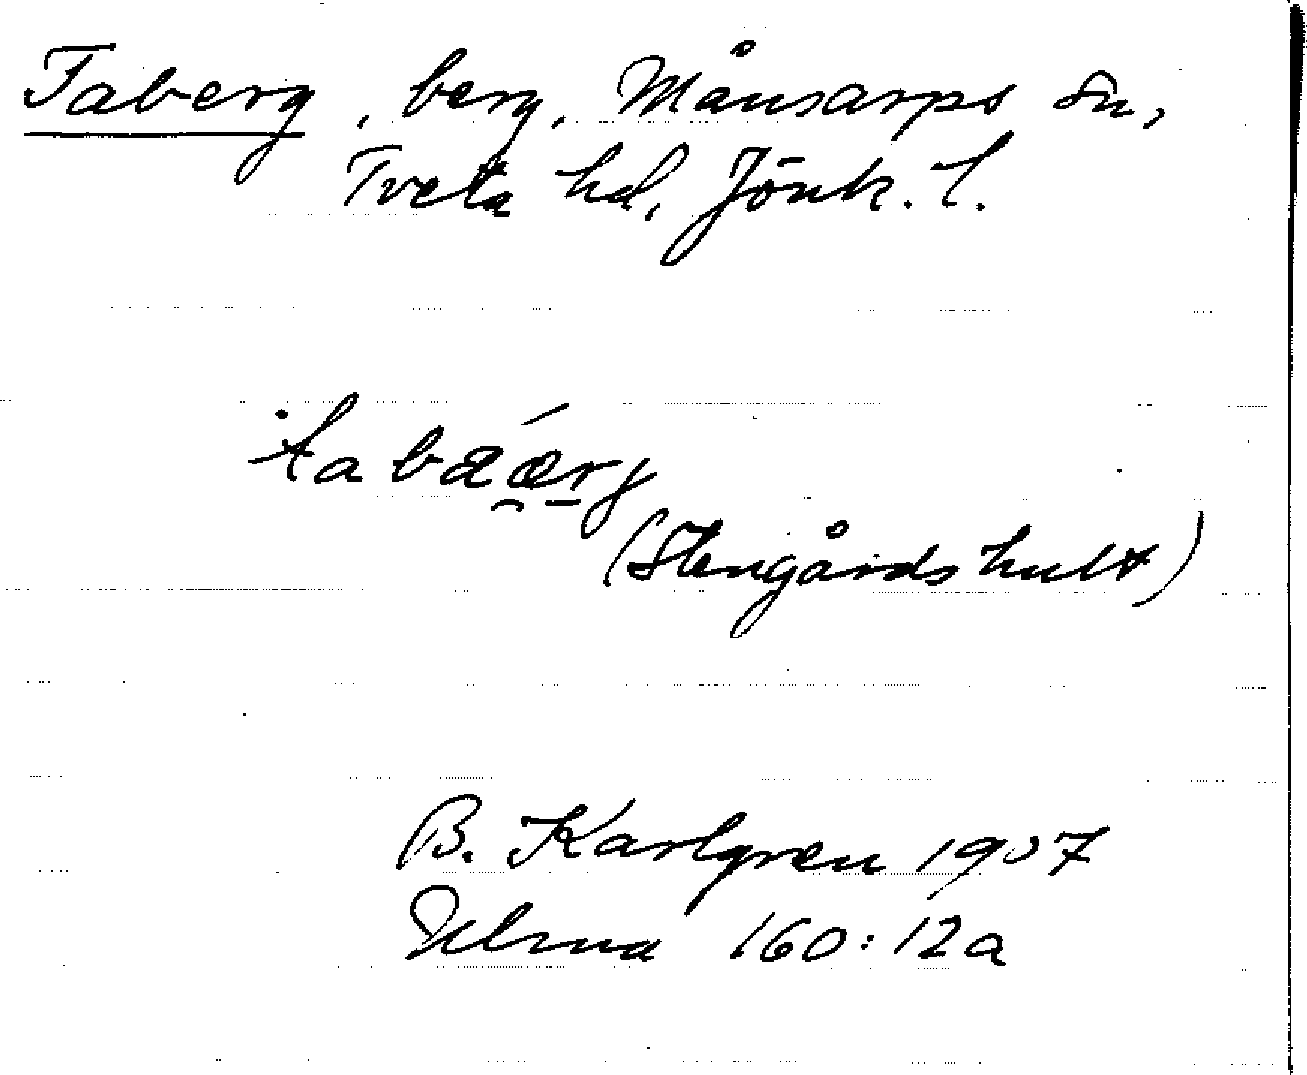 Taberg, berg, Månsarps sn,
Tveta hd, Jönk. l.
(Stengårdshult)
B. Karlgren 1907
160:12a